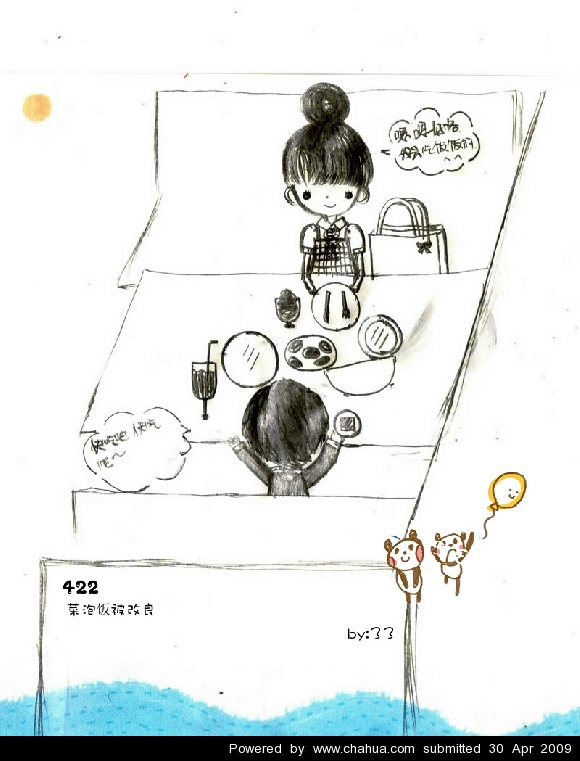 快吃吧 快吃
吧～
422
菜泡饭被改良
by:33
Powered by www.chahua.com submitted 30 Apr 2009